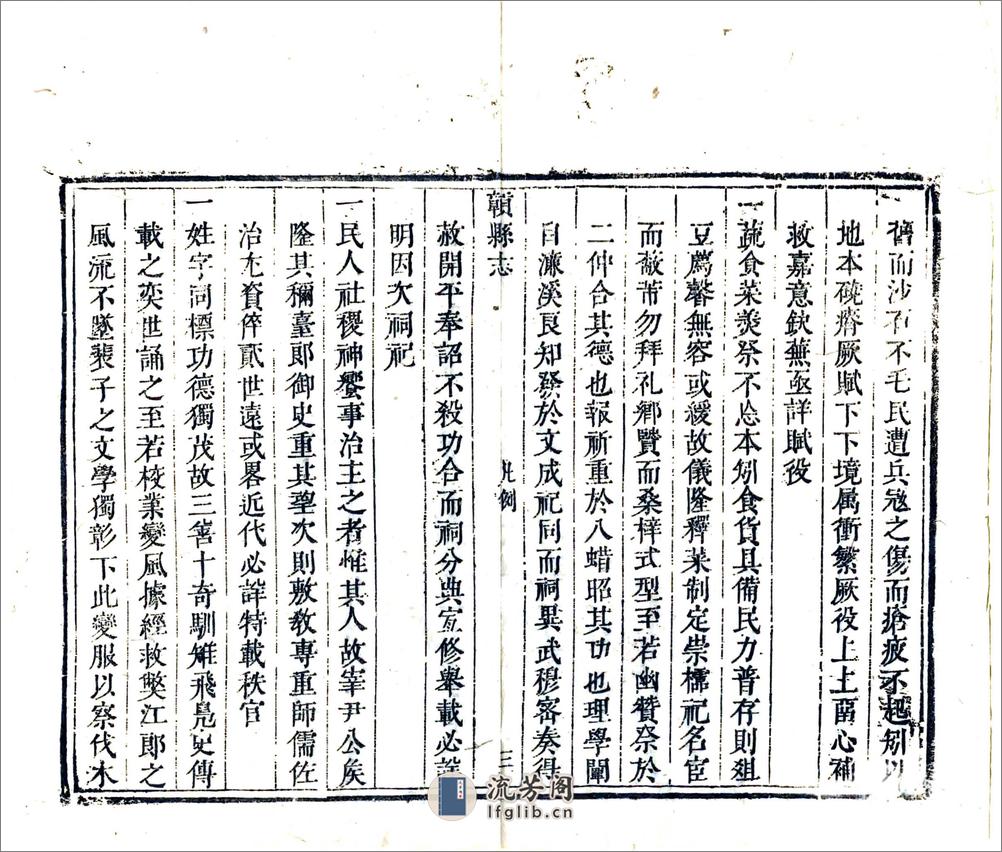 一舊而沙石不毛民遭兵寇之傷而瘡疲不起矧以
地本磽瘠厥賦下下境属衝繁厥役上上畱心補
救嘉意欽蕪亟詳賦役
一蔬食菜羮祭不忩本矧食貨具備民力普存則俎
豆薦馨無容或緩故儀隆釋菜制定崇檽祀名宦
而蔽芾勿拜礼鄉賢而桑梓式型至若幽贊祭於
二仲合其德也報祈重於八蜡昭其功也理學闡
自濂溪良知發於文成祀同而祠異武穆密奏得
贛縣志
凡例
三
赦開平奉詔不殺功合而祠分典宜修舉載必詳
明因次祠祀
一民人社稷神饗事治主之者惟其人故宰尹公矦
隆其稱臺郎御史重其望次則敷敎專重師儒佐
治尤資倅貳世遠或畧近代必詳特載秩官
一姓字同標功德獨茂故三善十奇馴雉飛鳧史傳
載之奕世誦之至若校業變風據經救獘江郎之
風流不墜裴子之文學獨彰下此變服以察伐木
流芳阁
lfglib.cn